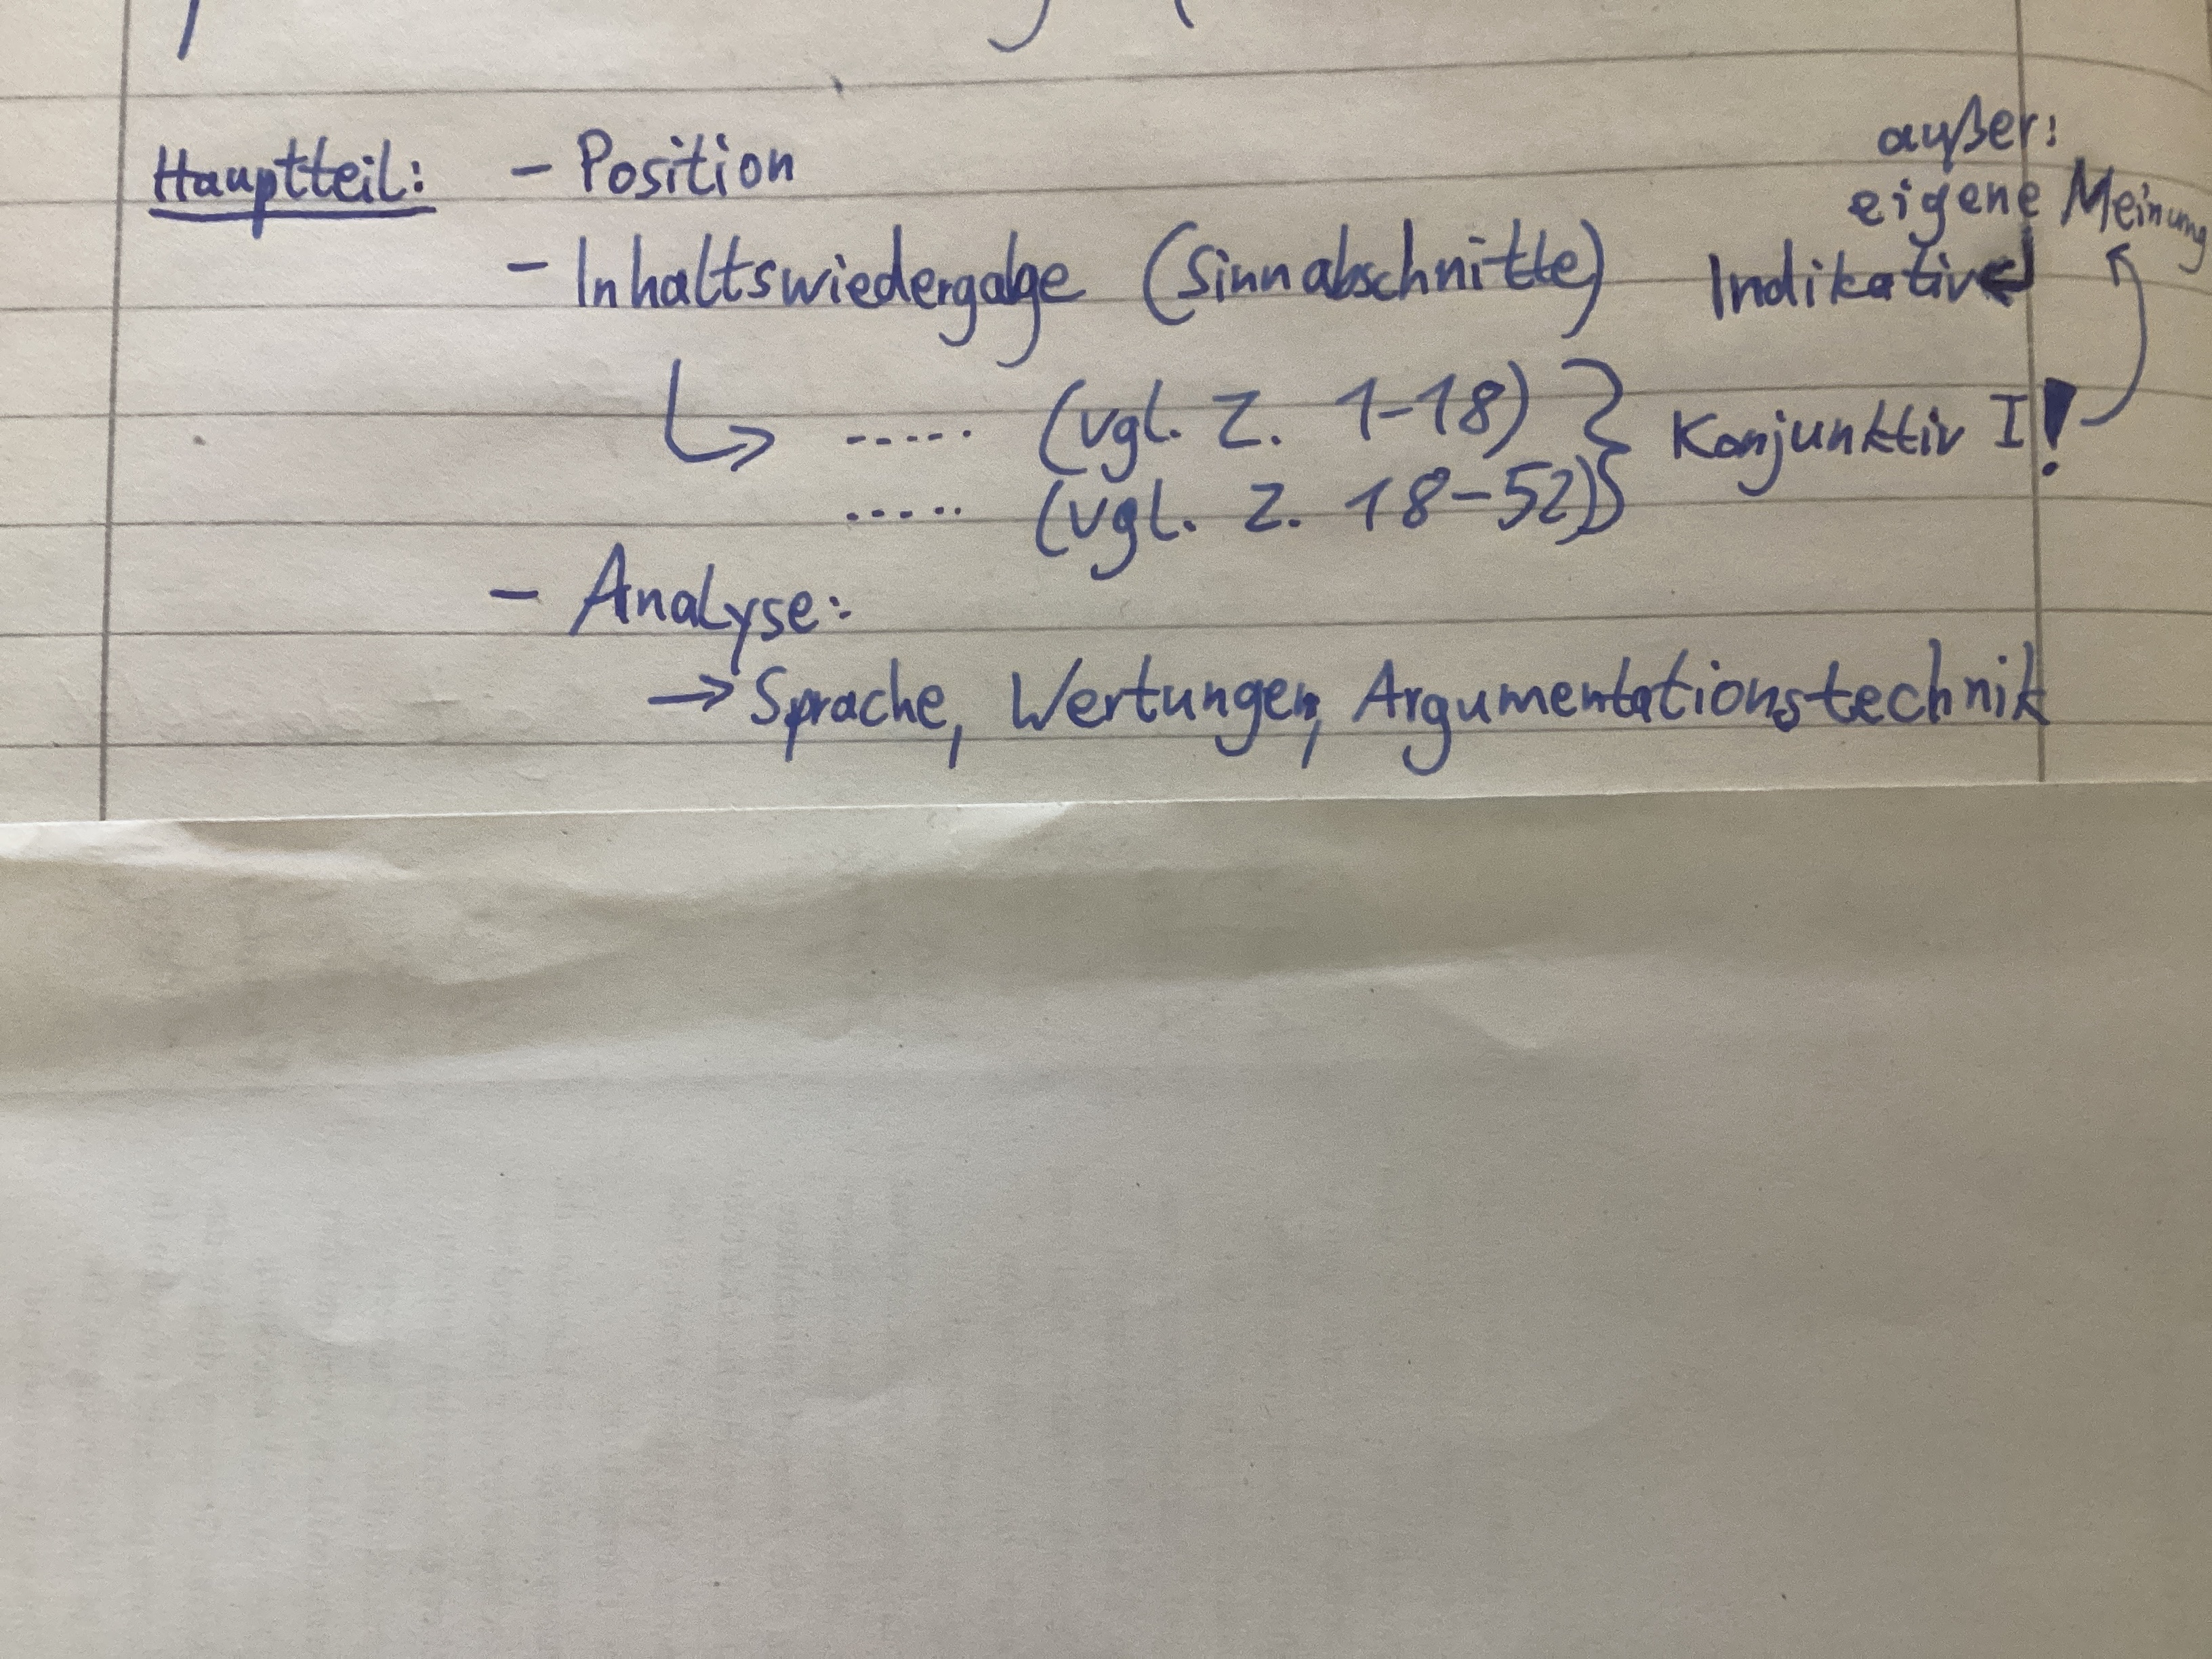 außer:
Hauptteil: - Position
eigene Meinung
- Inhaltswiedergabe (Sinnabschnitte) Indikativ
↳ ..... (vgl. Z. 1-18) } Konjunktiv I!
..... (vgl. Z. 18-52) }
- Analyse:
→ Sprache, Wertungen, Argumentationstechnik